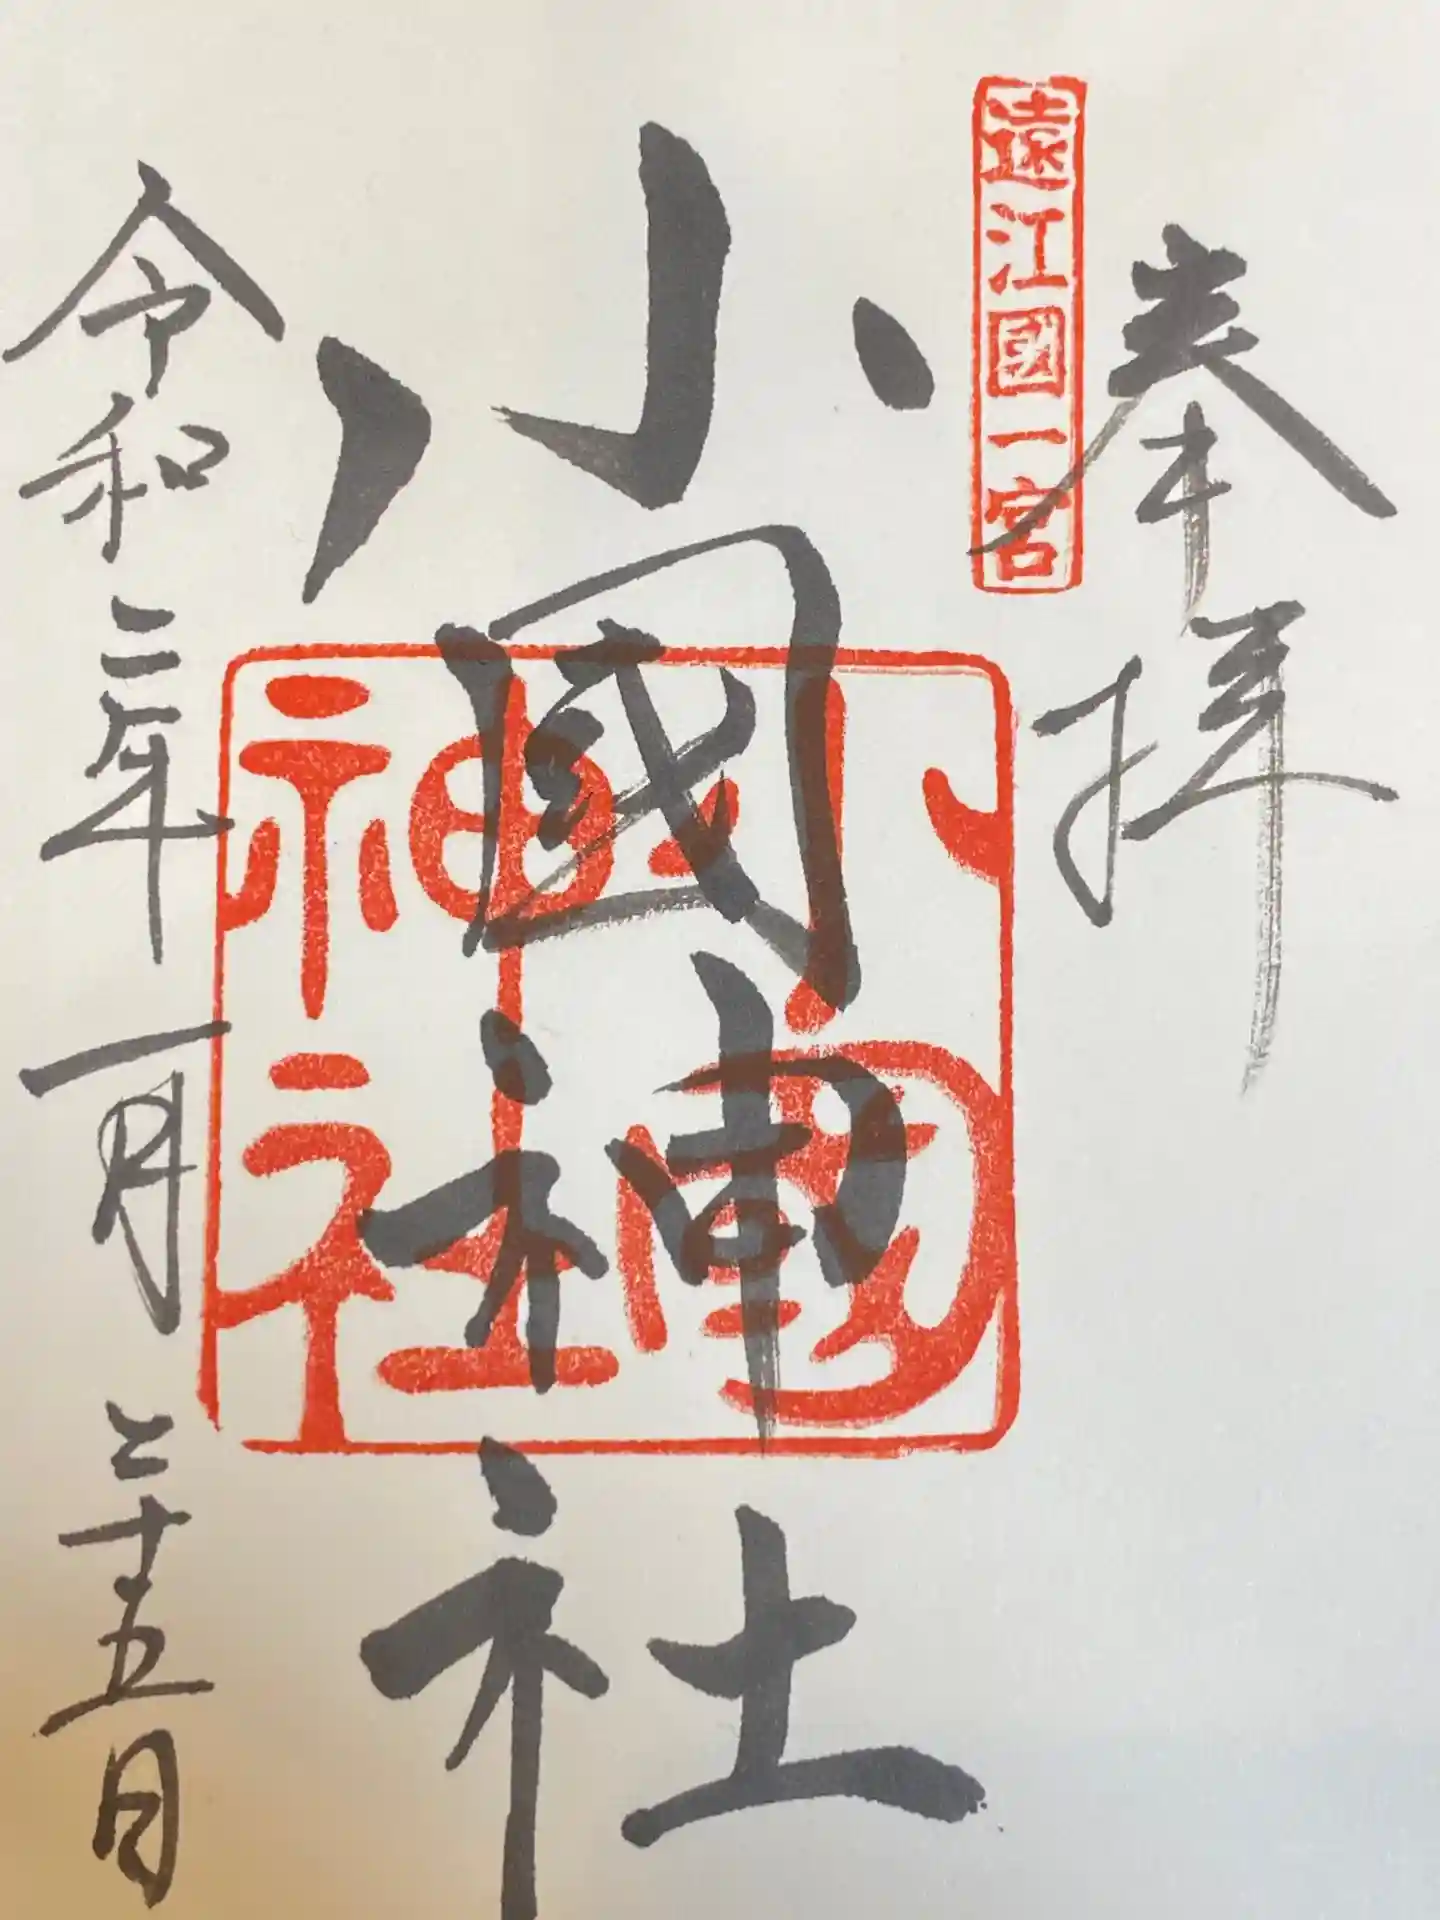 奉拝
遠江國一宮
小國神社
小國
神社
令和二年一月二十五日